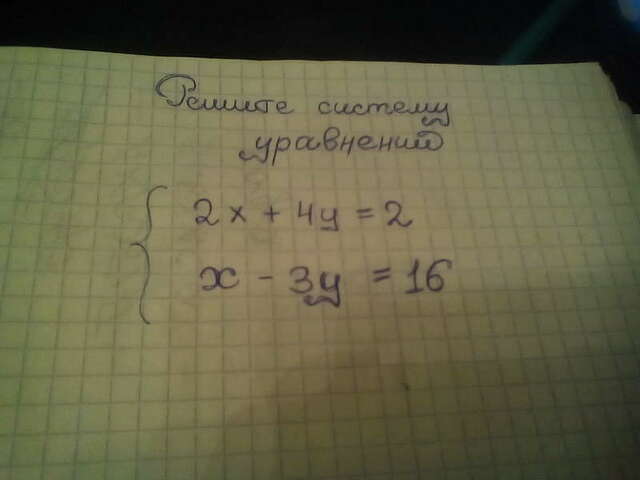 Решите систему
уравнений
2x + 4y = 2
x - 3y = 16